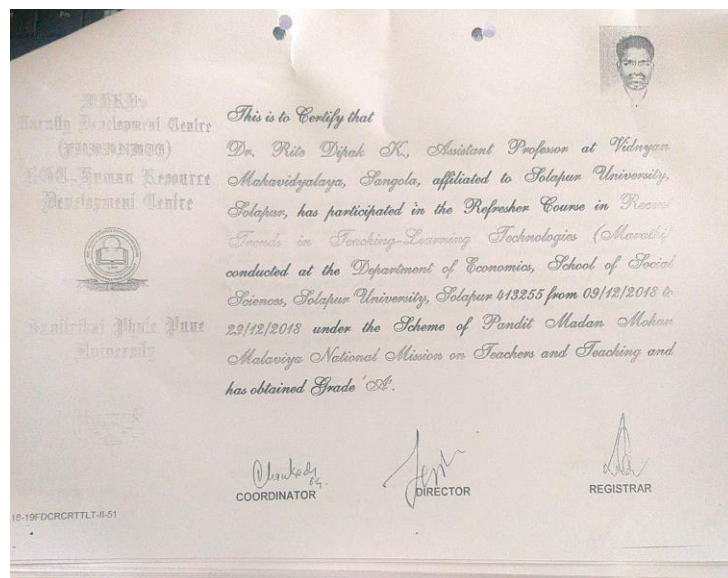 MHRD's
Faculty Development Centre
(PMMMNMTT)
UGC-Human Resource
Development Centre
Savitribai Phule Pune
University
This is to Certify that
Dr. Rite Dipak K., Assistant Professor at Vidnyan
Mahavidyalaya, Sangola, affiliated to Solapur University,
Solapur, has participated in the Refresher Course in Recent
Trends in Teaching-Learning Technologies (Marathi)
conducted at the Department of Economics, School of Social
Sciences, Solapur University, Solapur 413255 from 09/12/2018 to
29/12/2018 under the Scheme of Pandit Madan Mohan
Malaviya National Mission on Teachers and Teaching and
has obtained Grade 'A'.
COORDINATOR
DIRECTOR
REGISTRAR
18-19FDCRCRTTLT-II-51